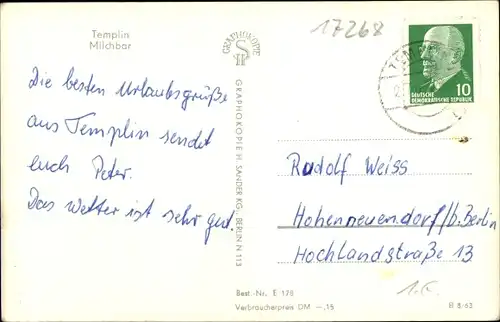 Templin
Milchbar
17268
GRAPHOKOPIE
H S
DEUTSCHE
DEMOKRATISCHE REPUBLIK
10
Die besten Urlaubsgrüße
aus Templin sendet
euch Peter.
Das Wetter ist sehr gut.
GRAPHOKOPIE H. SANDER KG. BERLIN N 113
Rudolf Weiss
Hohenneuendorf/b. Berlin
Hochlandstraße 13
Best.-Nr. E 178
Verbraucherpreis DM -,15
8/63